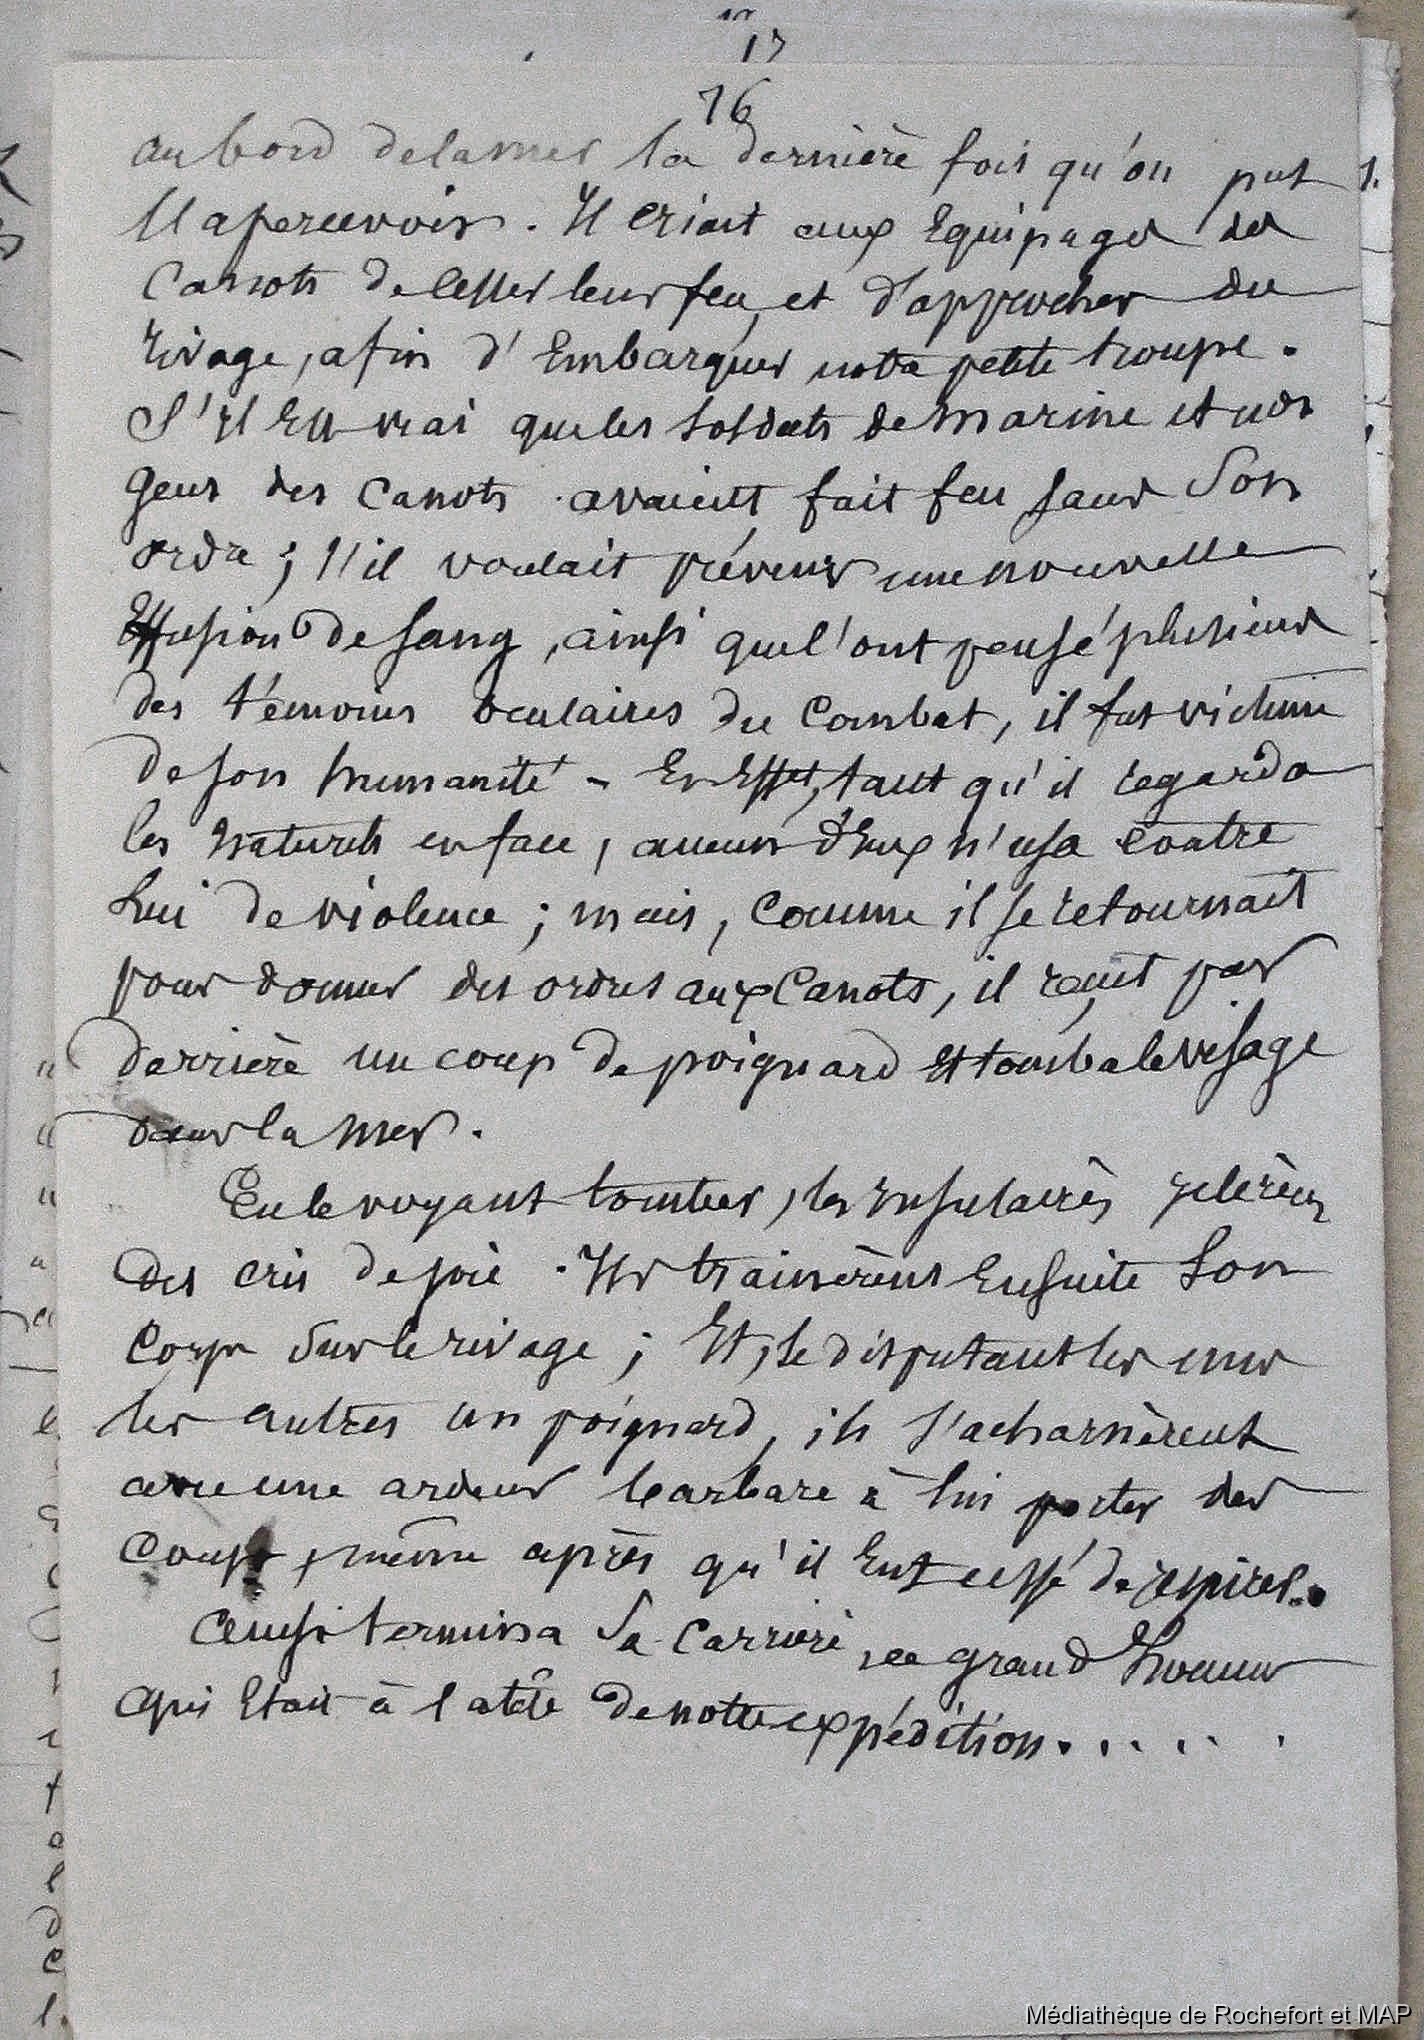 17
16
au bord de la mer la dernière fois qu'on put
l'apercevoir. Il criait aux Equipages des
Canots de cesser leur feu, et d'approcher du
rivage, afin d'Embarquer notre petite troupe.
S'il Est vrai que les soldats de marine et nos
gens des Canots avaient fait feu sans Son
ordre ; s'il voulait prévenir une nouvelle
Effusion de sang, ainsi que l'ont pensé plusieurs
des témoins oculaires du Combat, il fut victime
de son humanité - En Effet, tant qu'il regarda
les naturels en face, aucun d'Eux n'usa contre
Lui de violence ; mais, Comme il se retournait
pour donner des ordres aux Canots, il reçut par
derrière un coup de poignard Et tomba le visage
dans la mer.
En le voyant tomber, les Insulaires jetèrent
des cris de joie. Ils trainèrent Ensuite Son
Corps Sur le rivage ; Et, se disputant les uns
les autres un poignard, ils s'acharnèrent
avec une ardeur barbare à lui porter des
Coups, même après qu'il Eut cessé de respirer.
Ainsi termina Sa Carrière, ce grand homme
qui Etait à la tête de notre expédition......
Médiathèque de Rochefort et MAP